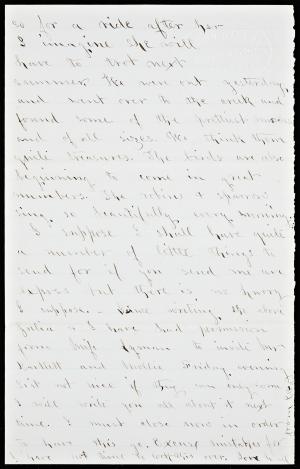 go for a ride after her
I imagine she will
have to trot next
summer. We went out yesterday,
and went over to the creek and
found some of the prettiest
and of all sizes. We think them
quite treasures. The birds are also
beginning to come in great
numbers. The robins & sparrows
sing so beautifully every morning.
I suppose I shall have quite
a number of little things to
send for if you send me an
express but there is no hurry
I suppose. - Since writing the above
Julia & I have had permission
from Miss Lyman to invite
Bartlett and Mollie Friday evening
I will write you all about it next
time. I must close now in order
to have this go. Excuse mistakes for
I have not time to look this over.